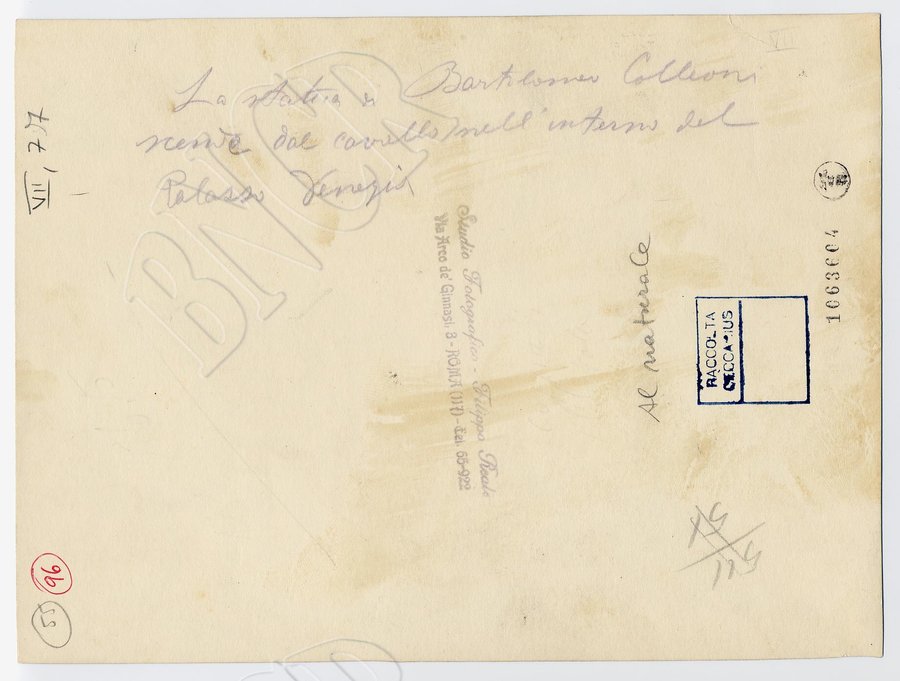 La statua di Bartolomeo Colleoni
scende dal cavallo nell'interno del
Palazzo Venezia
VII, 727
Studio Fotografico - Filippo Reale
Via Arco de' Ginnasi, 8 - ROMA (117) - Tel. 65-922
Al naturale
RACCOLTA
CECCARIUS
1063604
VII
96
55
BNCR